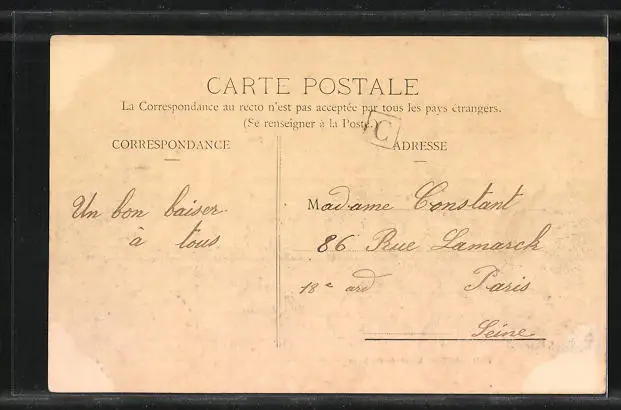 CARTE POSTALE
La Correspondance au recto n'est pas acceptée par tous les pays étrangers.
(Se renseigner à la Poste.)
C
CORRESPONDANCE
ADRESSE
Un bon baiser
à tous
Madame Constant
86 Rue Lamarck
18e ard Paris
Seine